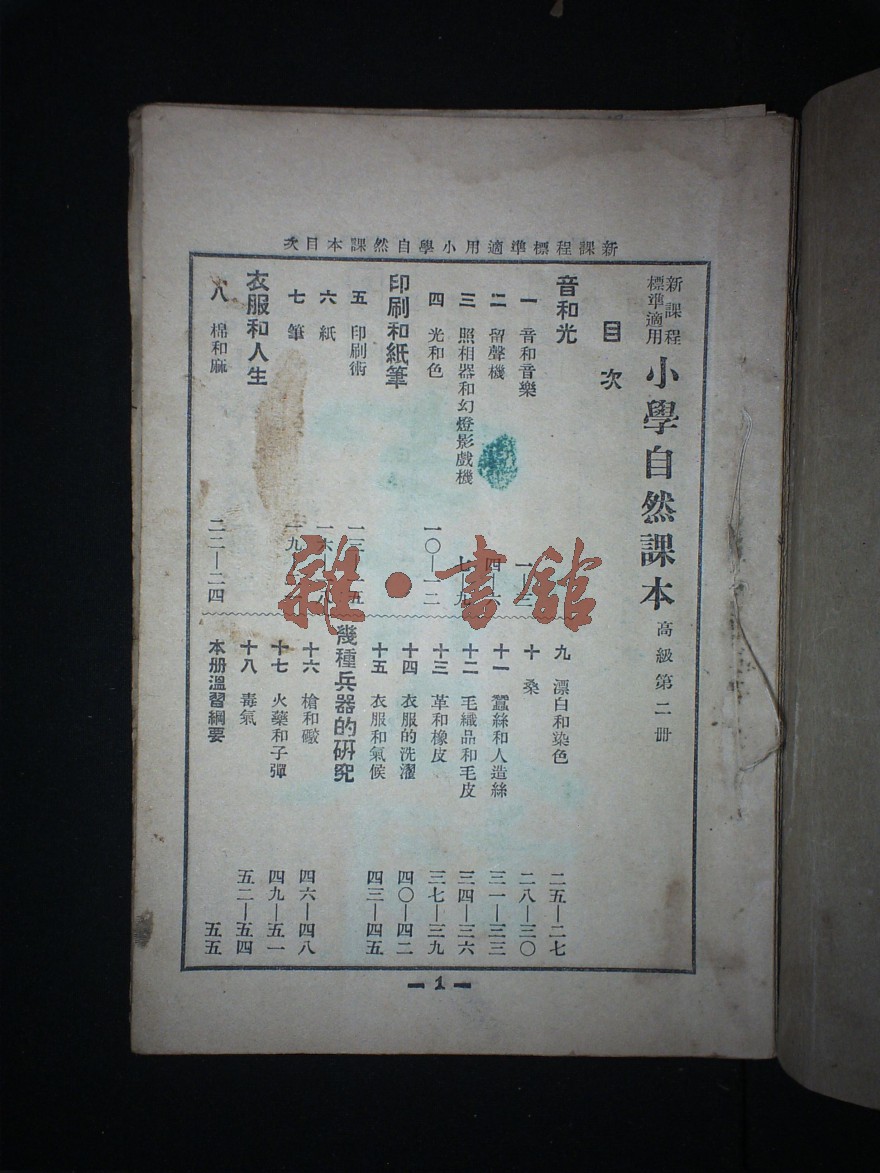 新課程標準適用小學自然課本目次
新課程標準適用 小學自然課本 高級第二册
目次
音和光
一 音和音樂 一—三
二 留聲機 四—六
三 照相器和幻燈影戲機 七—九
四 光和色 一〇—一二
印刷和紙筆
五 印刷術 一三—一五
六 紙 一六—一八
七 筆 一九—
衣服和人生
八 棉和麻 二二—二四
九 漂白和染色 二五—二七
十 桑 二八—三〇
十一 蠶絲和人造絲 三一—三三
十二 毛織品和毛皮 三四—三六
十三 革和橡皮 三七—三九
十四 衣服的洗濯 四〇—四二
十五 衣服和氣候 四三—四五
幾種兵器的研究
十六 槍和礮 四六—四八
十七 火藥和子彈 四九—五一
十八 毒氣 五二—五四
本册溫習綱要 五五
1
雜·書館